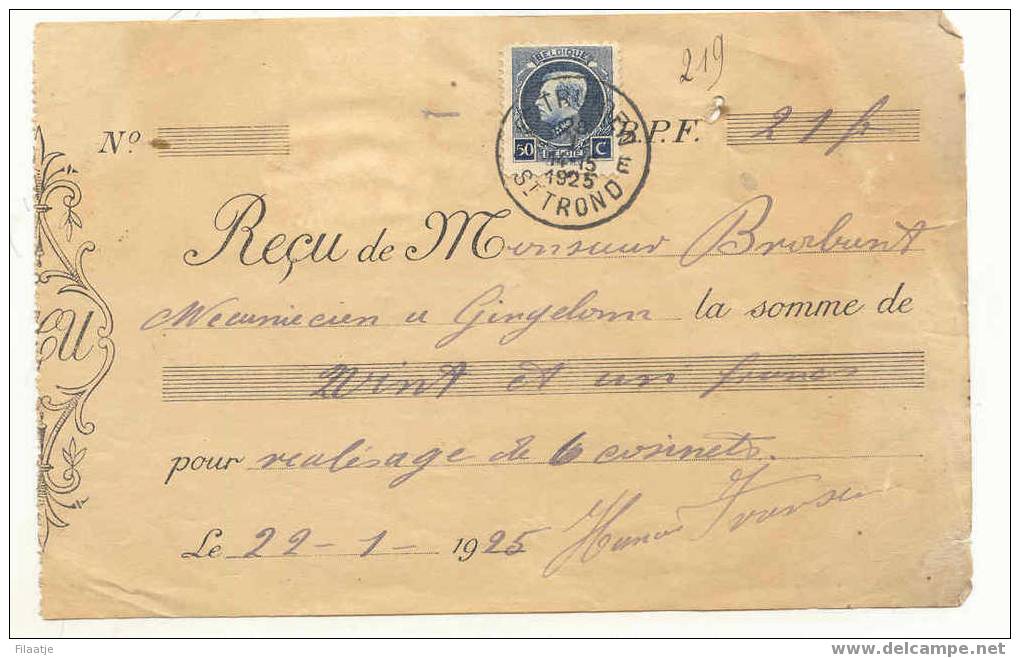 219
BELGIQUE
50 C
Nº
B.P.F. 21 fr
ST TRUIDEN
1925
ST TROND
Reçu de Monsieur Brabant
Mecaniecien a Gingelom la somme de
Vint et un francs
pour realésage de 6 coisinets.
Le 22-1-1925
Filaatje
www.delcampe.net